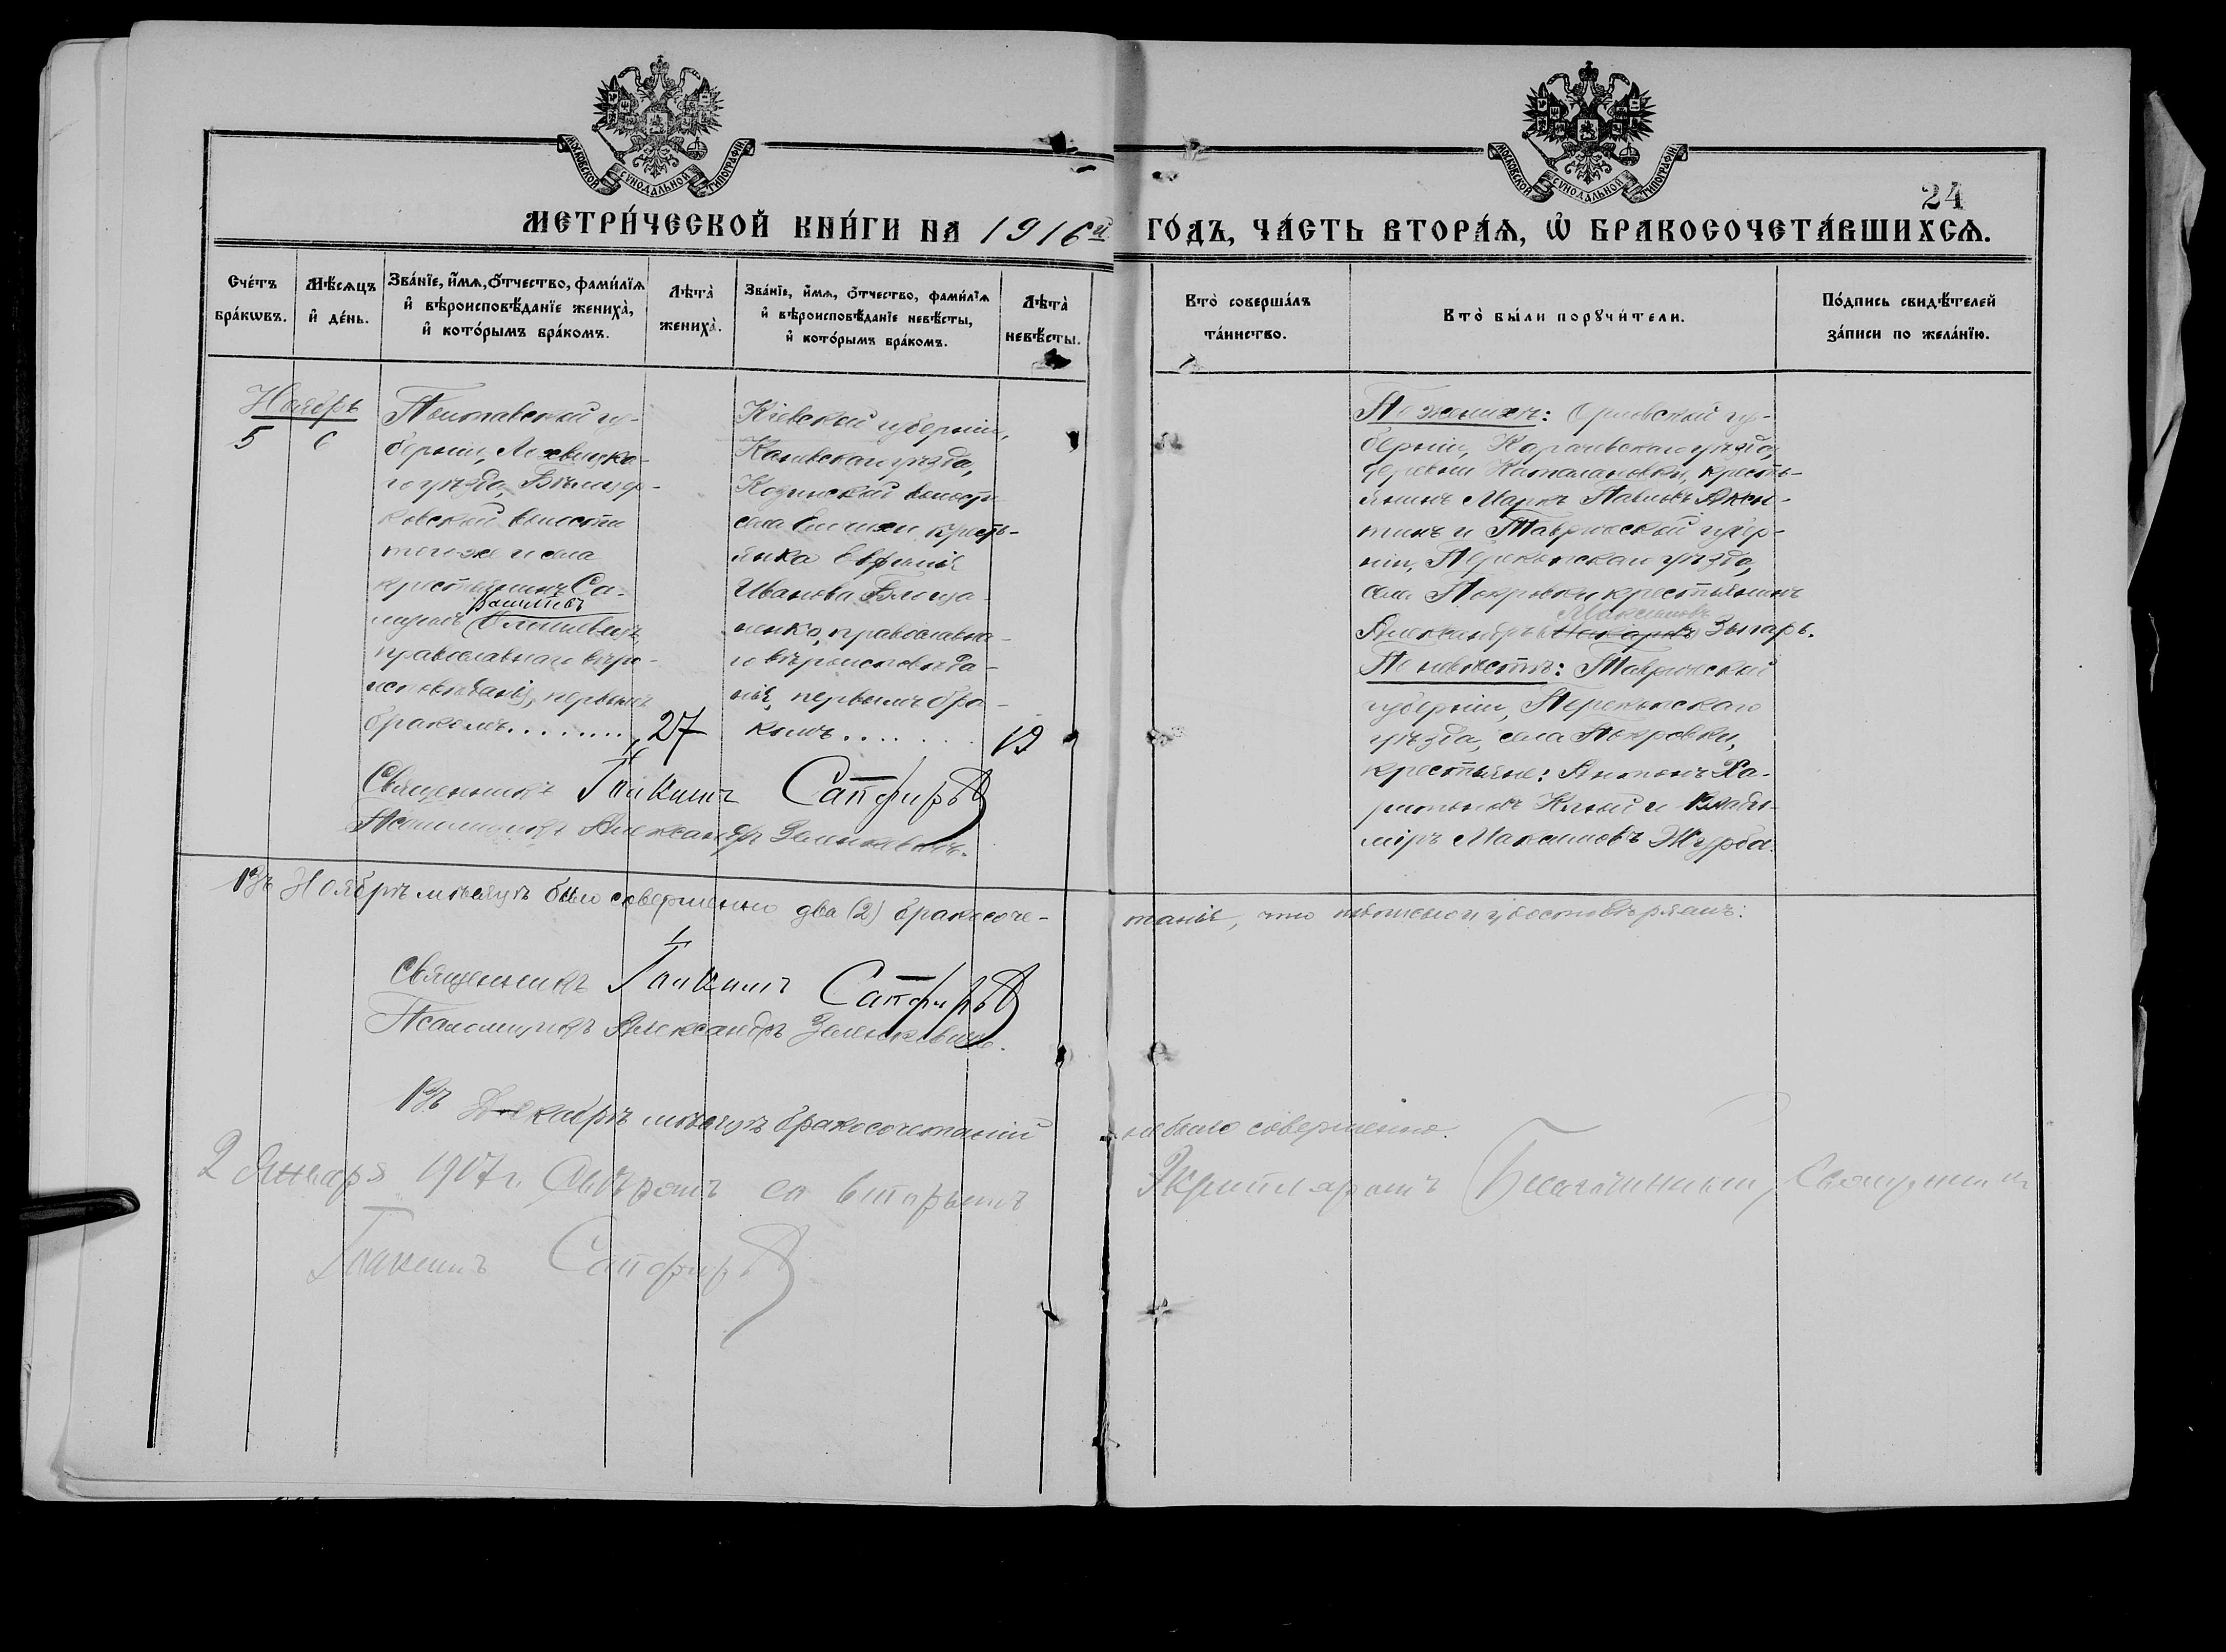 МОСКОВСКОЙ СѴНОДАЛЬНОЙ ТИПОГРАФІИ
МОСКОВСКОЙ СѴНОДАЛЬНОЙ ТИПОГРАФІИ
24
МЕТРИ́ЧЕСКОЙ КНИ́ГИ НА 1916й ГО́ДЪ, ЧА́СТЬ ВТОРА́Ѧ, Ѡ҆ БРАКОСОЧЕТА́ВШИХСѦ.
Сче́тъ бра́кѡвъ.
Мѣ́сѧцъ и҆ де́нь.
Зва́нїе, и҆́мѧ, ѻ҆́тчество, фами́лїѧ и҆ вѣроисповѣ́данїе жениха̀, и҆ кото́рымъ бра́комъ.
Лѣта̀ жениха̀.
Зва́нїе, и҆́мѧ, ѻ҆́тчество, фами́лїѧ и҆ вѣроисповѣ́данїе невѣ́сты, и҆ кото́рымъ бра́комъ.
Лѣта̀ невѣ́сты.
Кто̀ соверша́лъ та́инство.
Кто̀ бы́ли порꙋчи́тели.
По́дпись свидѣ́телей за́писи по жела́нїю.
Ноябрь
5 6
Полтавской гу-
берніи, Лохвицка-
го уѣзда, Бѣлоцер-
ковской волости
того-же и села
крестьянинъ Са-
православнаго вѣро-
исповѣданія, первымъ
бракомъ........ 27
Кіевской губерніи,
Каневскаго уѣзда,
Козинской волости
села крестъ-
янка Евфимія
Иванова
православна-
го вѣроисповѣда-
нія, первымъ бра-
комъ....... 19
Священникъ Іоакимъ Сапфировъ
Псаломщикъ Александръ Зеленкевичъ.
По женихѣ: Орловской гу-
берніи, Карачевскаго уѣзда,
деревни крестъ-
янинъ Маркъ Павловъ
и Таврической губер-
ніи, Перекопскаго уѣзда,
села Покровки крестьянинъ
Максимовъ
Александръ Захаровъ Знтарь.
По невѣстѣ: Таврической
губерніи, Перекопскаго
уѣзда, села Покровки,
крестьяне: Антонъ Ха-
ритоновъ и Влади-
міръ Максимовъ Журба.
Въ Ноябрѣ мѣсяцѣ было совершенно два (2) бракосоче-
танія, что подписью и удостовѣряемъ:
Священникъ Іоакимъ Сапфировъ
Псаломщикъ Александръ Зеленкевичъ.
Въ Декабрѣ мѣсяцѣ бракосочетаній не было совершенно.
2 Января 1917 г. Свѣрялъ со вторымъ Экземпляромъ Благочинный, Священникъ
Іоакимъ Сапфировъ